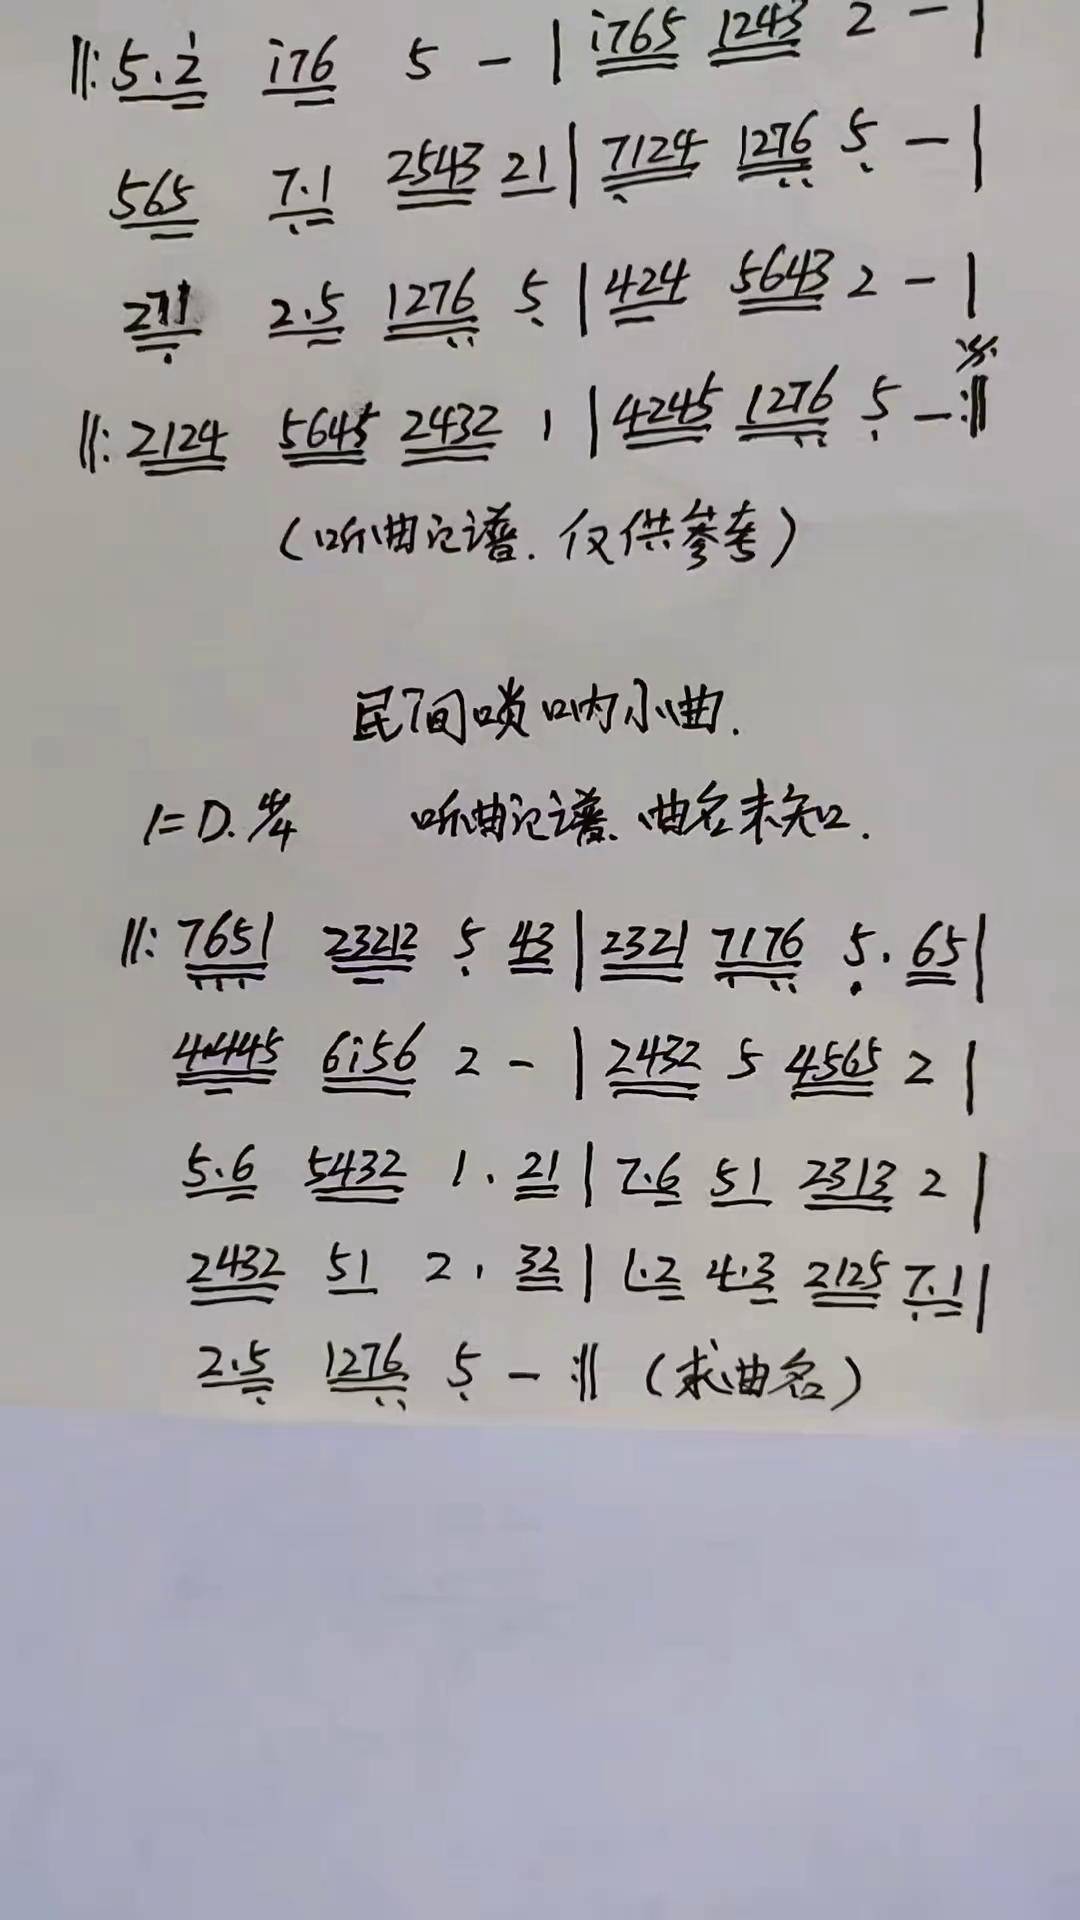 ‖: 5.2̇ i76 5 - | i765 1243 2 - |
565 7.1 2543 21 | 7124 1276 5 - |
2.5 1276 5 | 424 5643 2 - |
‖: 2124 5645 2432 1 | 4245 1276 5 - :‖
(听曲记谱.仅供参考)
民间唢呐小曲.
1=D.4/4 听曲记谱.曲名未知.
‖: 7651 23212 5 43 | 2321 7176 5. 65 |
4.445 6i56 2 - | 2432 5 4565 2 |
5.6 5432 1. 21 | 7.6 51 2313 2 |
2432 51 2. 32 | 1.2 4.3 2125 7.1 |
2.5 1276 5 - :‖ (求曲名)